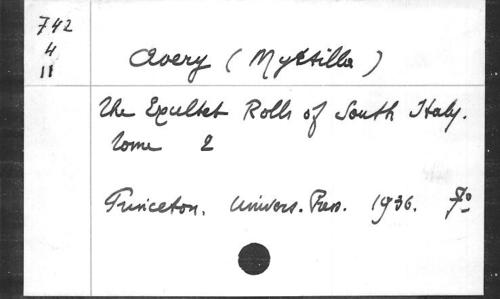 742
4
11
Avery (Myrtilla)
The Exultet Rolls of South Italy.
Tome 2
Princeton. Univers. Press. 1936. Fº